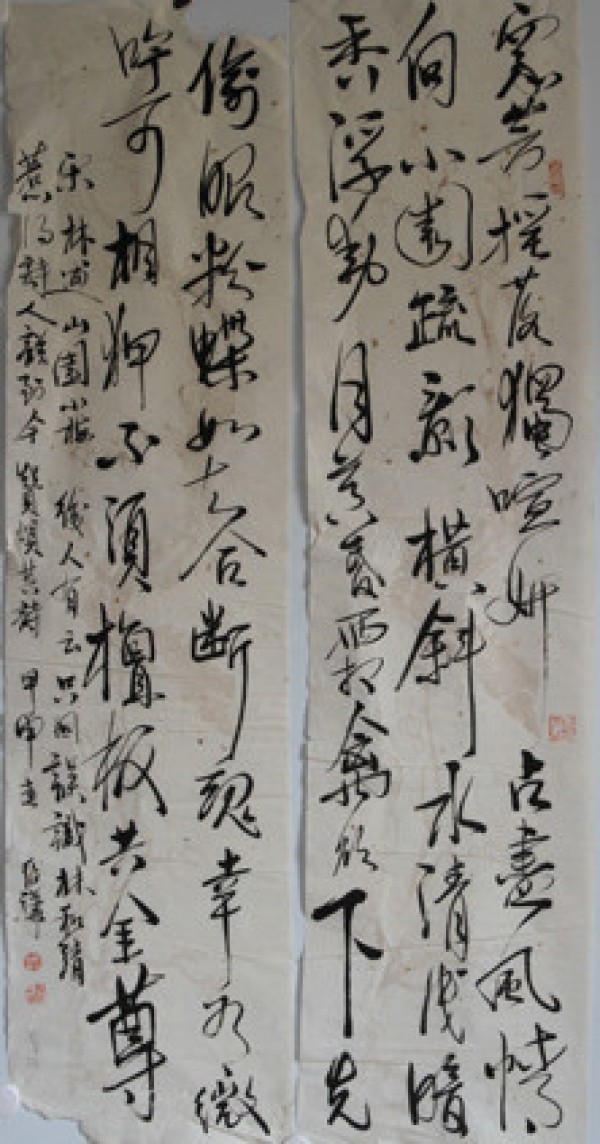 衆芳摇落獨喧妍占盡風情
向小園疏影横斜水清浅暗
香浮動月黄昏霜禽欲下先
偷眼粉蝶如知合断魂幸有微
吟可相狎不須檀板共金尊
宋林逋山園小梅 後人有云只因誤識林和靖
惹得詩人說到今 甲申